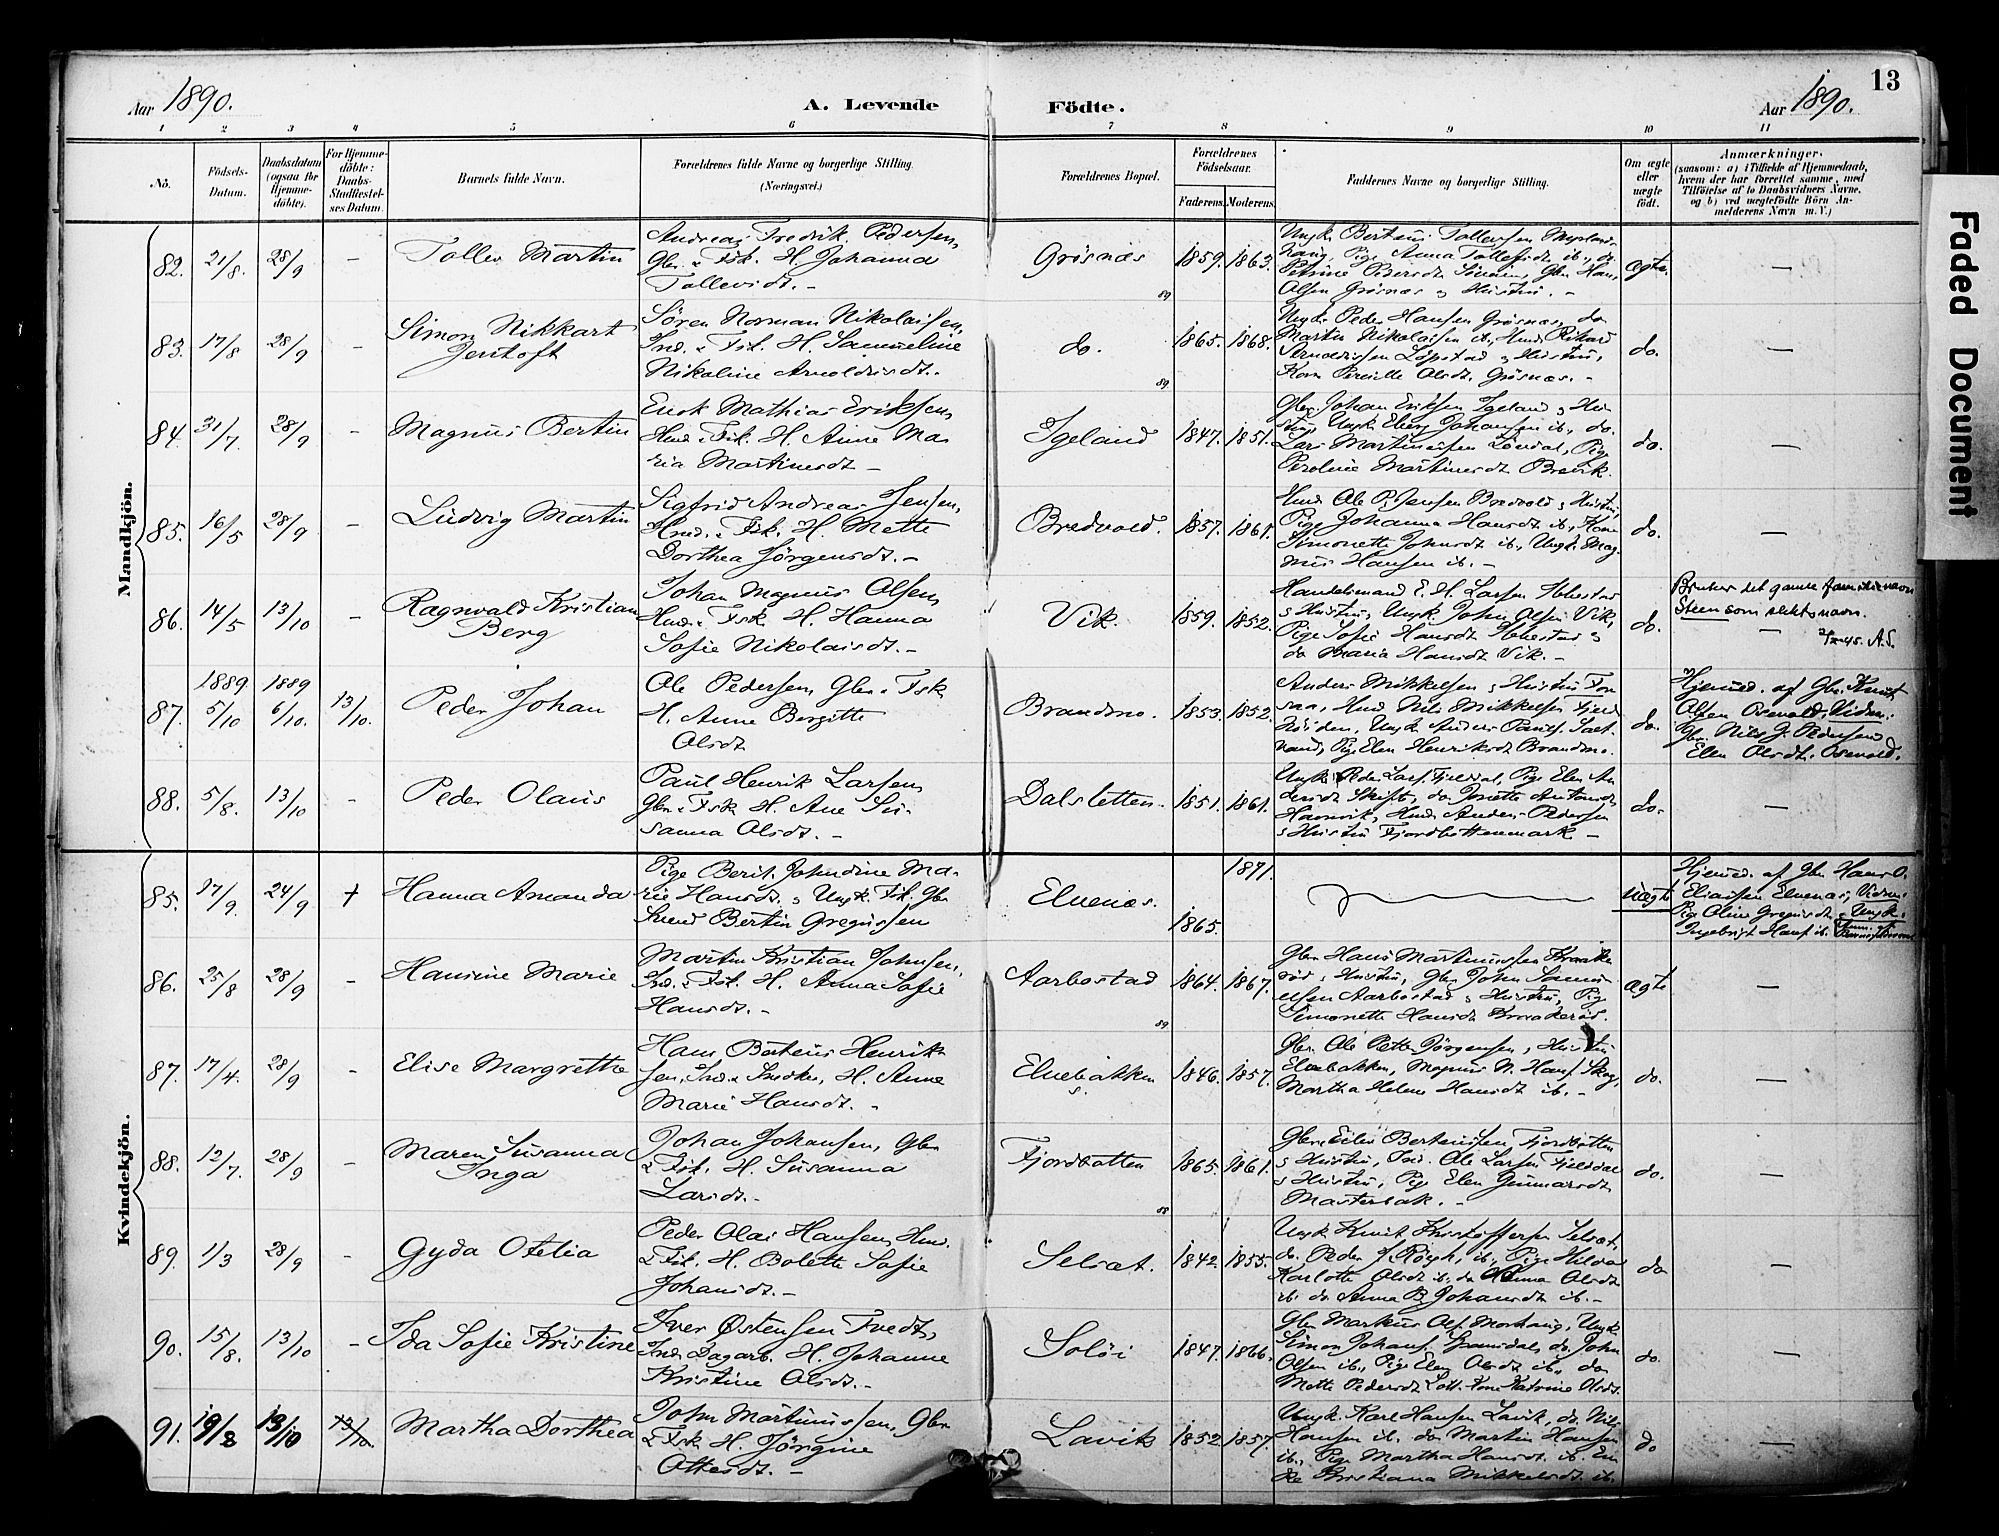 13
Aar 1890.
A. Levende Födte.
Aar 1890.
1 2 3 4 5 6 7 8 9 10 11
No.
Födsels-Datum.
Daabsdatum (ogsaa for Hjemme-döbte).
For Hjemme-döbte: Daabs-Stadfæstel-ses Datum.
Barnets fulde Navn.
Forældrenes fulde Navne og borgerlige Stilling.
(Næringsvei.)
Forældrenes Bopæl.
Forældrenes Födselsaar.
Faderens. Moderens.
Faddernes Navne og borgerlige Stilling.
Om ægte eller uægte födt.
Anmærkninger.
(saasom: a) i Tilfælde af Hjemmedaab, hvem der har forrettet samme, med Tilföielse af to Daabsvidners Navne, og b) ved uægtefödte Börn An-melderens Navn m. V.)
Faded Document
Mandkjön.
82. 21/8. 28/9 - Tollev Martin
Andreas Fredrik Pedersen,
Gbr. & Fsk. H. Johanna
Tollevsdt. -
Grøsnæs 89 1859. 1863.
Ungk. Berteus Tollevsen
Pige Anna Tollefsdt ib., do
Petrine Pedersdt Gbr. Hans
Olsen Grøsnæs & Hustru. -
Ægte. -
83. 17/8 28/9 - Simon Nikkart
Jentoft
Sören Norman Nikolaisen,
Ind. & Fsk. H. Sammeline
Nikoline Arnoldusdt. -
do. 89 1865. 1868.
Ungk. Peder Hansen Grøsnæs, do
Martin Nikolaisen ib., Hmd. Rikard
Arnoldussen Löpstad & Hustru,
Kone Pernille Olsdt. Grøsnæs. -
do. -
84. 31/7. 28/9 - Magnus Bertin
Enok Mathias Eriksen,
Hmd. & Fsk. H. Anne Ma
ria Martinusdt -
Igeland 1847. 1851.
Gbr. Johan Eriksen Igeland & Hu
stru, Ungk. Eberg Johansen ib., do.
Lars Martinussen Pige
Peroline Martinusdt Brovik.
do. -
85. 16/5 28/9 - Ludvig Martin
Sigfrid Andreas Jensen,
Hmd. & Fsk. H. Mette
Dorthea Jörgensdt. -
Bredvold. 1857. 1861.
Hmd. Ole P. Jensen Bredvold & Hustru,
Pige Johanna Hansdt ib., Kone
Simonette Johnsdt ib., Ungk. Mag
nus Hansen ib. -
do. -
86. 14/5 13/10 - Ragnvald Kristian
Berg
Johan Magnus Olsen,
Hmd. & Fsk. H. Hanna
Sofie Nikolaisdt. -
Vik. 1859. 1852.
Handelsmand E. H. Larsen Ibbestad
& Hustru, Ungk. John Olsen Vik,
Pige Sofie Hansdt Ibbestad &
do Maria Hansdt Vik. -
do.
Bruker det gamle familienavn
Steen som slektsnavn.
45. A.S.
87. 1889. 5/10 1889 6/10. 13/10. Peder Johan
Ole Pedersen, Gbr. & Fsk
H. Anne Bergitte
Olsdt
Brandmo. 1853. 1852.
Anders Mikkelsen & Hustru
Hmd. Nils Mikkelsen Fjeld
Ungk. Anders Pauls.
Pige Elen Henriksdt Brandmo.
do.
Hjemd. af Gbr. Knut
Olsen Osevold, Vidn.:
Gbr. Nils J. Pedersen &
Elen Olsdt. Osevold.
88. 5/8. 13/10 - Peder Olaus
Paul Henrik Larsen,
Gbr. & Fsk H. Ane Su
sanna Olsdt. -
Dalsletten. 1851. 1861.
Ungk. Peder Lars. Fjeldal, Pige Elen An
dersdt Skift, do Jonette Antonsdt
Havnvik, Hmd. Anders Pedersen
& Hustru Fjordbottenmark -
do. -
Kvindekjön.
85. 17/9. 24/9 + Hanna Amanda
Pige Berit Johndine Ma-
rie Hansdt. & Ungk. Fsk. Gbr
Svend Bertin Gregussen
Elvenæs. 1865. 1871.
Uægte
Hjemd. af Gbr. Hans O.
Eliassen Elvenæs, Vidn.:
Pig Oline Gregusdt & Ungk.
Ingebrigt Hans. ib.
86. 25/8 28/9 - Hansine Marie
Martin Kristian Johnsen,
Ind. & Fsk. H. Anna Sofie
Hansdt. -
Aarbostad 89 1864. 1867.
Gbr. Hans Martinussen Kraake
rös & Hustru, Gbr. John Samu
elsen Aarbostad & Hustru, Pig
Simonette Hansdt Kraakerös.
Ægte -
87. 17/4. 28/9 - Elise Margrethe
Hans Berteus Henrik
sen, Ind. & Snedker, H. Anne
Marie Hansdt. -
Elvebakken S. 1846. 1857.
Gbr. Ole Petter Jørgensen & Hustru
Elvebakken, Magnus N. Hans. Skog,
Martha Helene Hansdt ib. -
do. -
88. 12/7. 28/9 - Maren Susanna
Inga
Johan Johansen, Gbr
& Fsk. H. Susanna
Larsdt. -
Fjordbotten 88 1865. 1861.
Gbr. Eiler Bertheussen Fjordbotten
& Hustru, Ind. Ole Larsen Fjeldal
& Hustru, Pige Elen Gunnarsdt
Masterbak. -
do. -
89. 1/3 28/9 - Gyda Otelia
Peder Olai Hansen, Hmd.
& Fsk. H. Bolette Sofie
Johansdt. -
Selsæt. 1842 1855.
Ungk Knut Kristoffersen Selsæt,
do. Peder J. Røkh, ib., Pige Hilda
Karlotte Olsdt ib. do Anna Olsdt
ib. do. Anna B. Johansdt ib. -
do -
90. 15/8. 13/10 - Ida Sofie Kristine
Iver Østensen Tvedt,
Ind. Dagarb. H. Johanne
Kristine Olsdt. -
Soløi 1847. 1866.
Gbr. Markus Ols. Morhaug, Ungk
Simon Johans. do. John
Olsen ib., Pige Elen Olsdt ib., do
Mette Pedersdt Kone Katrine Olsdt.
do. -
91. 19/8 13/10 13/10. Martha Dorthea
John Martinussen, Gbr
& Fsk H. Jörgine
Ottesdt. -
Lavik 1852 1857.
Ungk. Karl Hansen Lavik, do. Nils
Hansen ib. do Martin Hansen
ib., Pige Martha Hansdt ib. En
ke Kristiana Mikkelsdt ib.
do -